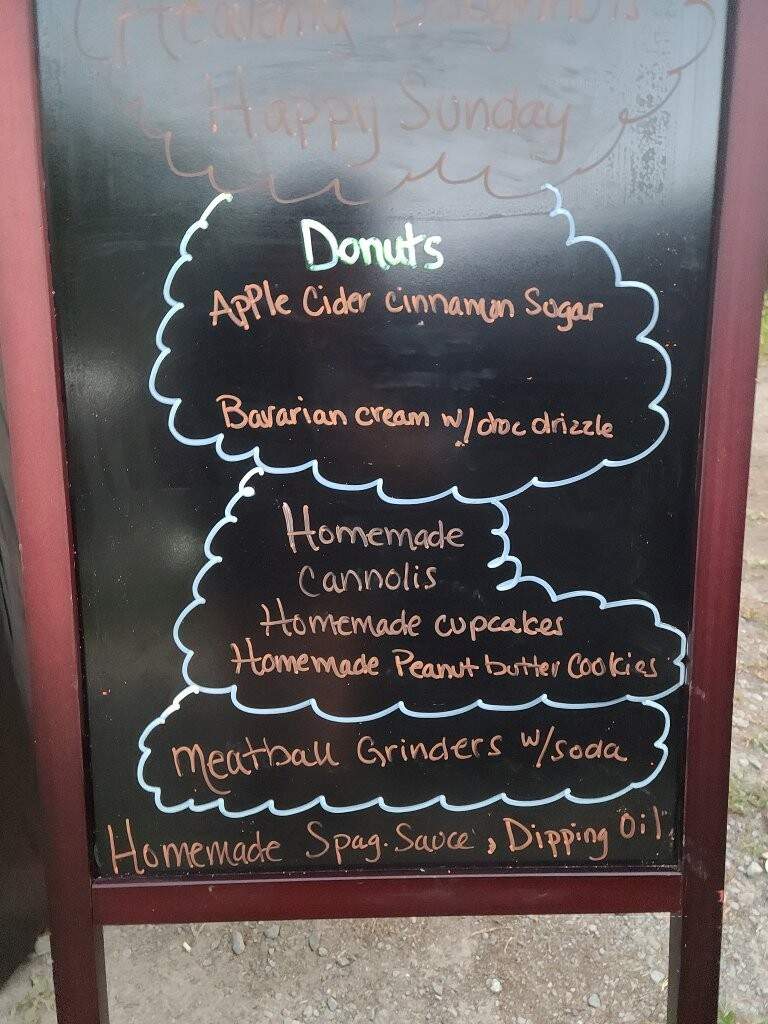 Heavenly Doughnuts
Happy Sunday
Donuts
Apple Cider cinnamon Sugar
Bavarian cream w/ choc drizzle
Homemade
Cannolis
Homemade cupcakes
Homemade Peanut butter Cookies
Meatball Grinders w/soda
Homemade Spag. Sauce, Dipping Oil